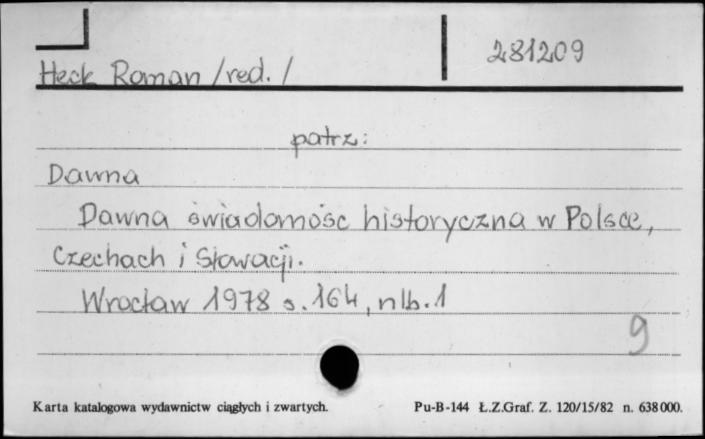 281209
Heck Roman /red./
patrz:
Dawna
Dawna świadomość historyczna w Polsce,
Czechach i Słowacji.
Wrocław 1978 s. 164, nlb. 1
9
Karta katalogowa wydawnictw ciągłych i zwartych. Pu-B-144 Ł.Z.Graf. Z. 120/15/82 n. 638000.